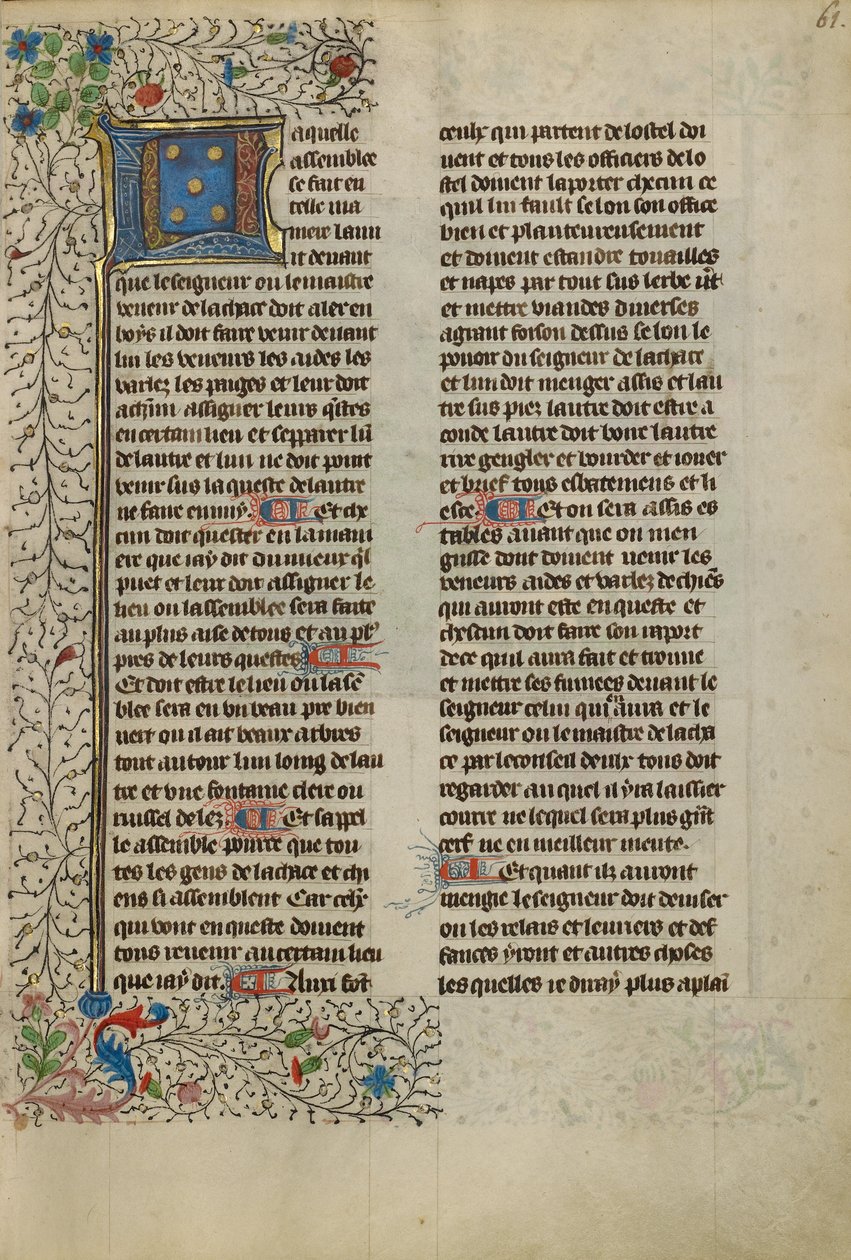 61.
aquelle
assemblee
se fait en
telle ma
niere la nu
it devant
que le seigneur ou le maistre
veneur de la chace doit aler en
boys il doit faire venir devant
lui les veneurs les aides les
varlez les paiges et leur doit
achũn assigner leurs q̃stes
en certain lieu et sepparer lũ
de lautre et lun ne doit point
venir sus la queste de lautre
ne faire ennuy. Et chũ
cun doit quester en la mani
ere que iay dit du mieux q̃l
puet et leur doit assigner le
lieu ou lassemblee sera faite
au plus aise de tous et au pl⁹
pres de leurs questes
Et doit estre le lieu ou lasẽ
blee sera en un beau pre bien
vert ou il ait beaux arbres
tout autour lun loing de lau
tre et une fontaine clere ou
ruissel delez. Et sappel
le assemble pource que tou
tes les gens de la chace et chi
ens si assemblent Car celx
qui vont en queste doivent
tous revenir au certain lieu
que iay dit. Auxi sõt
ceulx qui partent de lostel doi
vent et tous les officiers de lo
stel doivent laporter chũcun ce
quil lui fault selon son office
bien et planteureusement
et doivent estandre touailles
et napes par tout sus lerbe v̾t
et mettre viandes diverses
a grant foison dessus selon le
povoir du seigneur de la chace
et lun doit menger assis et lau
tre sus piez lautre doit estre a
coude lautre doit boire lautre
rire gengler et bourder et iouer
et brief tous esbatemens et li
esce. Et on sera assis es
tables avant que on men
gusse dont doivent venir les
veneurs aides et varlez de chiẽs
qui auront este en queste et
chescun doit faire son raport
de ce quil aura fait et trouve
et mettre ses fumees devant le
seigneur celui qui en aura et le
seigneur ou le maistre de la cha
ce par le conseil deulx tous doit
regarder au quel il yra laissier
courre ne lequel sera plus gũt
cerf ne en meilleur meute.
Et quant ilz auront
mengie le seigneur doit deviser
ou les relais et levriers et def
fances yront et autres choses
les quelles ie diray plus a plaĩ